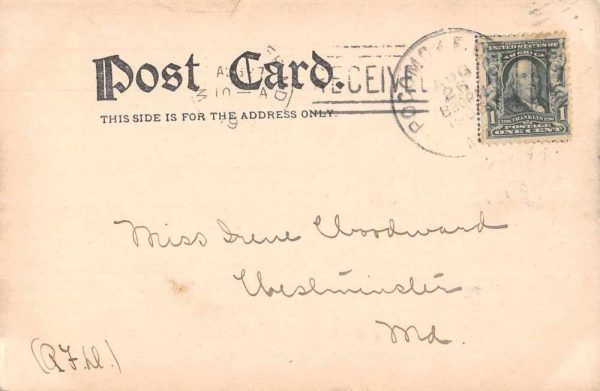 Post Card.
THIS SIDE IS FOR THE ADDRESS ONLY.
RECEIVED
AUG
UNITED STATES OF AMERICA
FRANKLIN
POSTAGE
1 ONE CENT 1
Miss Irene Woodward
Westminster
Md.
(R.F.D.)